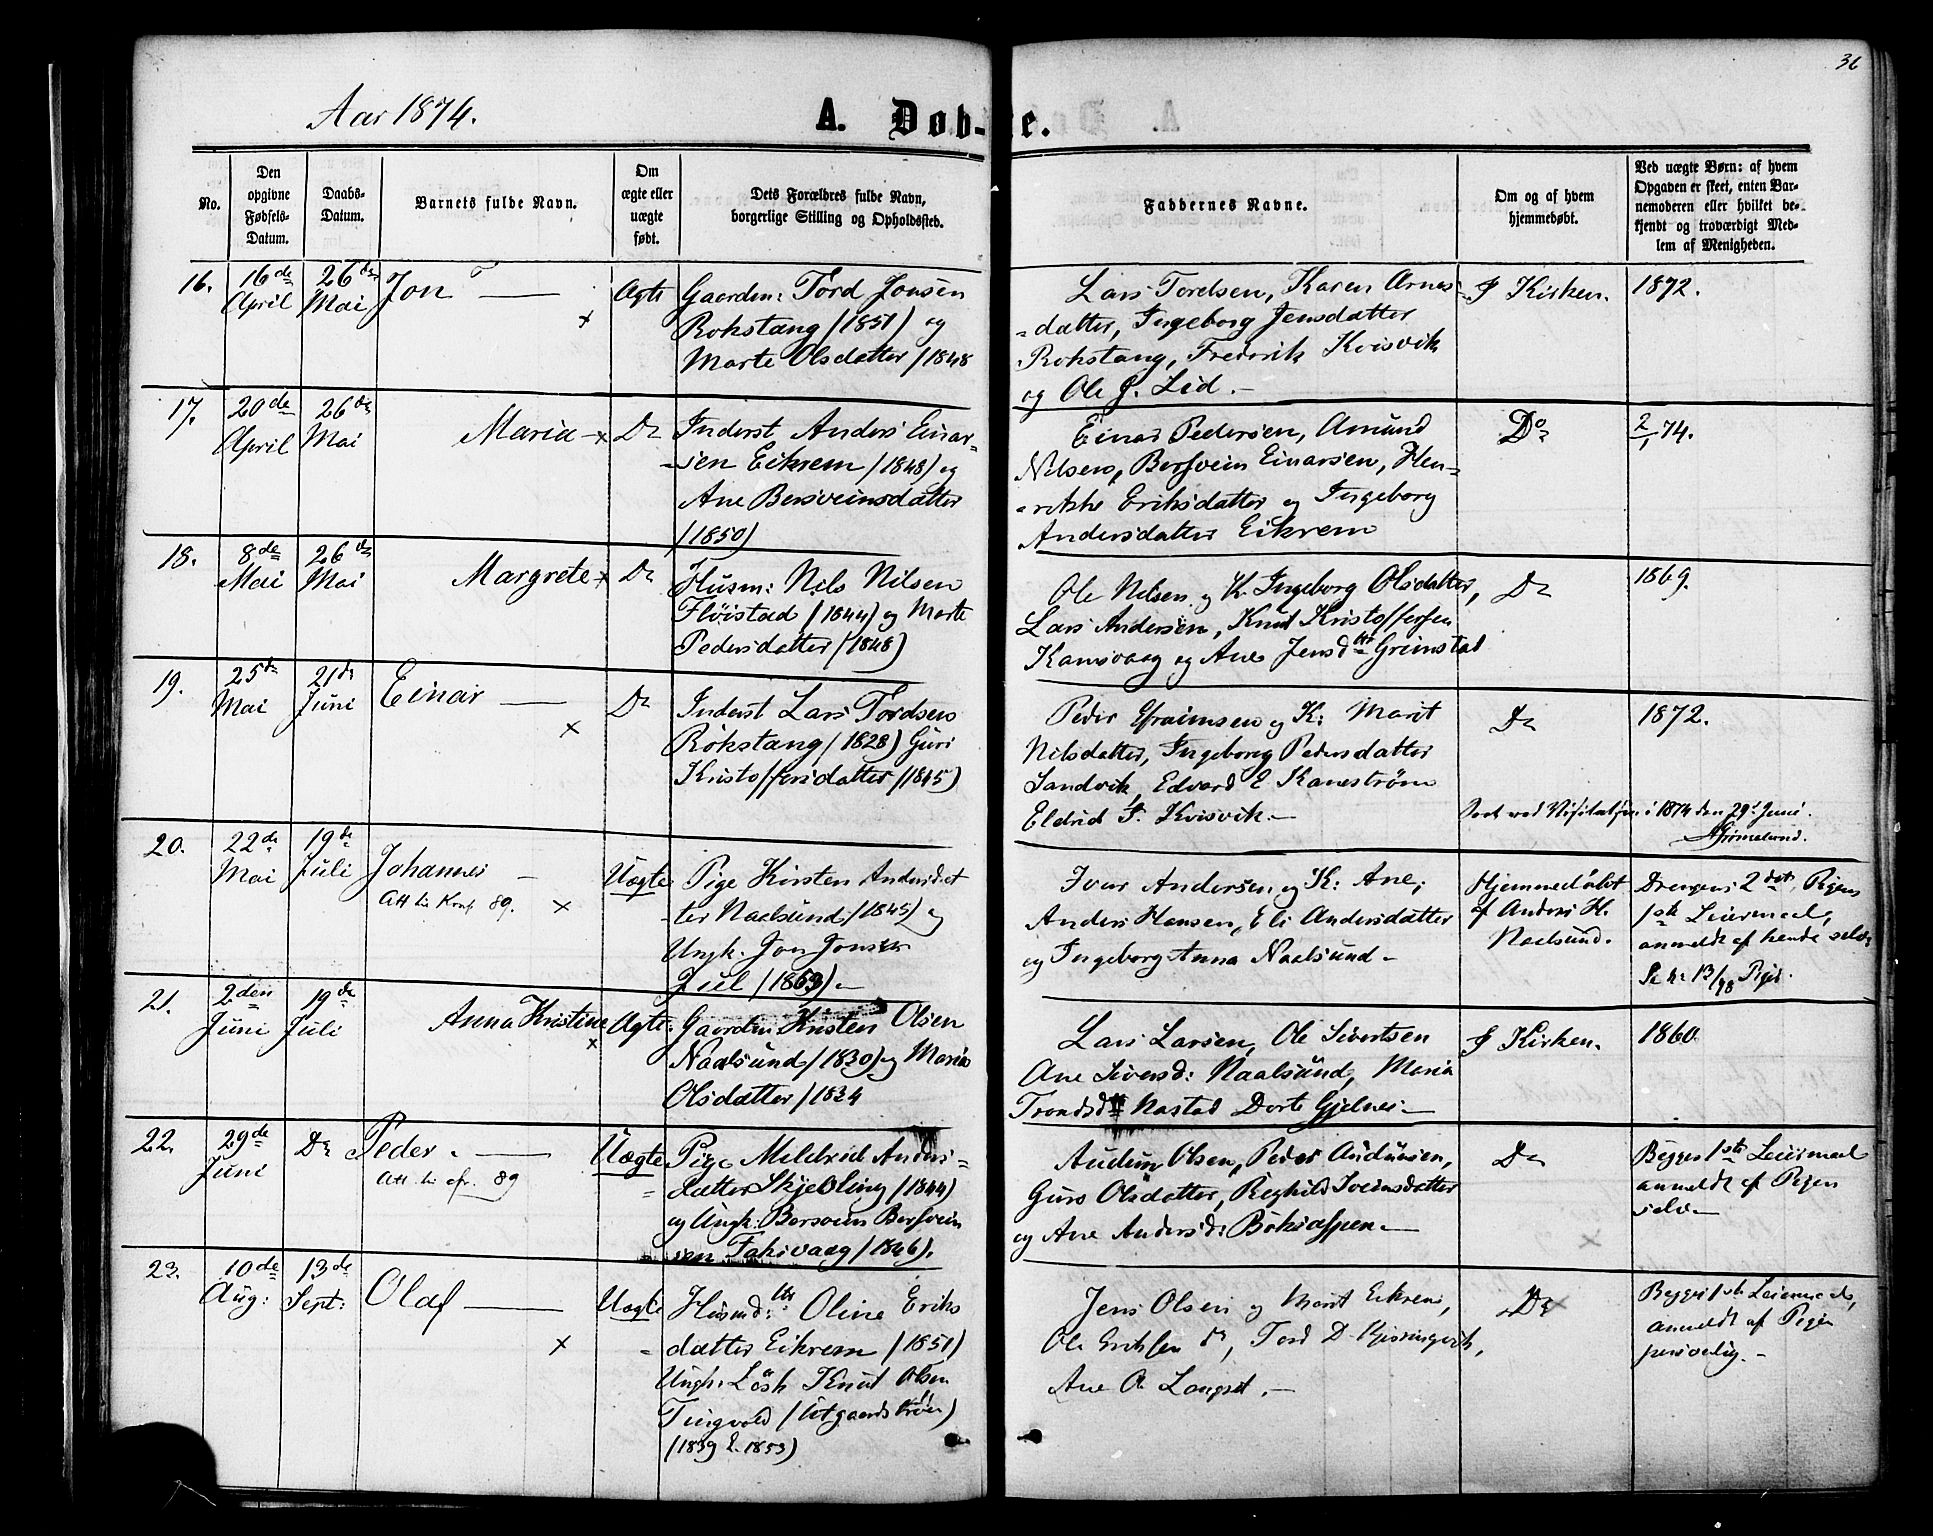 36
Aar 1874.
A. Døb-te.
No.
Den opgivne Fødsels-Datum.
Daabs-Datum.
Barnets fulde Navn.
Om ægte eller uægte født.
Dets Forældres fulde Navn, borgerlige Stilling og Opholdssted.
Faddernes Navne.
Om og af hvem hjemmedøbt.
Ved uægte Børn: af hvem Opgaven er skeet, enten Barnemoderen eller hvilket bekjendt og troværdigt Medlem af Menigheden.
16.
16de April
26de Mai
Jon
Ægte
Gaardm: Tord Jonsen
Rokstang (1851) og
Marte Olsdatter (1848
Lars Tordsen, Karen Arnes-
-datter, Ingeborg Jensdatter
Rokstang, Frederik Kvisvik
og Ole J. Lid. -
I Kirken.
1872.
17.
20de April
26de Mai
Maria
Do
Inderst Anders Einar-
-sen Eikrem (1848) og
Ane Bersveinsdatter
(1850)
Einar Pedersen, Amund
Nilsen, Bersvein Einarsen, Hen-
-rikke Eriksdatter og Ingeborg
Andersdatter Eikrem
Do
2/1 74.
18.
8de Mai
26de Mai
Margrete
Do
Husm: Nils Nilsen
Fløistad (1844) og Marte
Pedersdatter (1848)
Ole Nilsen og K. Ingeborg Olsdatter,
Lars Andersen, Knut Kristoffersen
Kamsvaag og Ane Jensdtr Grimstad
Do
1869.
19.
25de Mai
21de Juni
Einar
Do
Inderst Lars Tordsen
Rokstang (1828) Guri
Kristoffersdatter (1845)
Peder Efraimsen og K: Marit
Nilsdatter, Ingeborg Pedersdatter
Sandvik, Edvard E Kanestrøm
Eldrid T. Kvisvik. -
Do
1872.
Seet ved Visitatsen i 1874 den 29de Juni.
Grimelund.
20.
22de Mai
19de Juli
Johannes
Att. til Konf 89.
Uægte
Pige Kirsten Andersdat
-ter Naalsund (1845) og
Ungk: Jon Jonsen
Juel (1853). -
Ivar Andersen og K: Ane,
Anders Hansen, Eli Andersdatter
og Ingeborg Anna Naalsund -
Hjemmedøbt
af Anders H.
Naalsund.
Drengens 2det, Pigens
1ste Leiermaal,
anmeldt af hende selv.
21.
2den Juni
19de Juli
Anna Kristine
Ægte.
Gaardm: Kristen Olsen
Naalsund (1830) og Maria
Olsdatter (1834
Lars Larsen, Ole Sivertsen
Ane Siversd: Naalsund, Maria
Trondsdtr Nastad Dorte Gjelnes -
I Kirken.
1860
22.
29de Juni
Do
Peder
Att. til 89
Uægte
Pige Mildrid Anders-
-datter Skjebling (1844)
og Ungk: Bersvein Bersvein
sen Fahsvaag (1846).
Audun Olsen, Peder Audunsen,
Guro Olsdatter, Reghild Sveinsdatter
og Ane Andersd: Boksaspen -
Do
Begges 1ste Leiermaal
anmeldt af Pigen
selv. -
23.
10de Aug:
13de Sept:
Olaf
Uægte
Husmd:tr Oline Eriks
datter Eikrem (1851)
Ungk. Løsk Knut Olsen
Tingvold (Utgaardstrøen)
(1839 l. 1853)
Jens Olsen og Marit Eikrem,
Ole Eriksen do, Tord D. Kjøringvik,
Ane O. Langset. -
Do
Begges 1ste Leiermaal,
anmeldt af Pigen
personlig. -